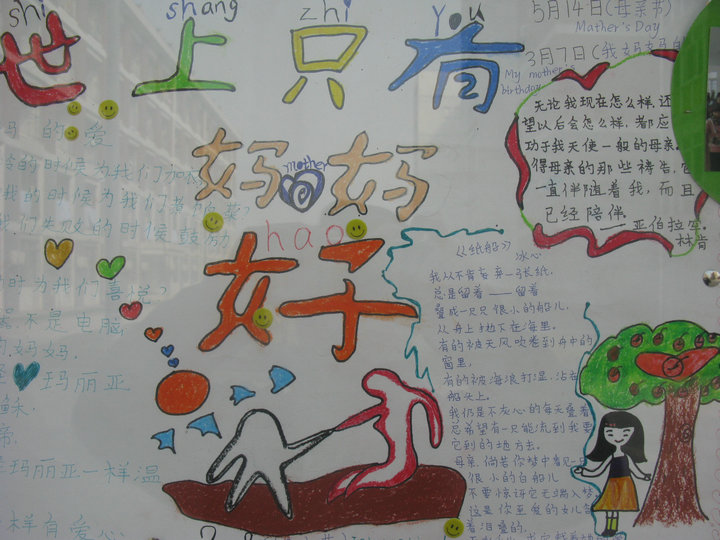 shi shang zhi you
世上只有
妈 mother 妈
hao
好
5月14日(母亲节)
Mother's Day
3月7日(我妈妈的
My mother's
birthday
无论我现在怎么样,还
望以后会怎么样,都应
功于我天使一般的母亲。
得母亲的那些祷告,它
一直伴随着我,而且
已经陪伴。
——亚伯拉罕
林肯
《纸船》
冰心
我从不肯妄弃一张纸,
总是留着——留着
叠成一只只很小的船儿,
从舟上抛下在海里。
有的被天风吹卷到舟中的
窗里,
有的被海浪打湿,沾在
船头上。
我仍是不灰心的每天叠着
总希望有一只能流到我要
它到的地方去。
母亲,倘若你梦中看见一只
很小的白船儿
不要惊讶它无端入梦
这是你至爱的女儿含
着泪叠的
妈的爱
的时候为我们加
我的时候为我们煮
我们失败的时候鼓励
时为我们喜悦?
不是电脑,
的妈妈.
玛丽亚
稣.
帝.
玛丽亚一样温
样有爱心